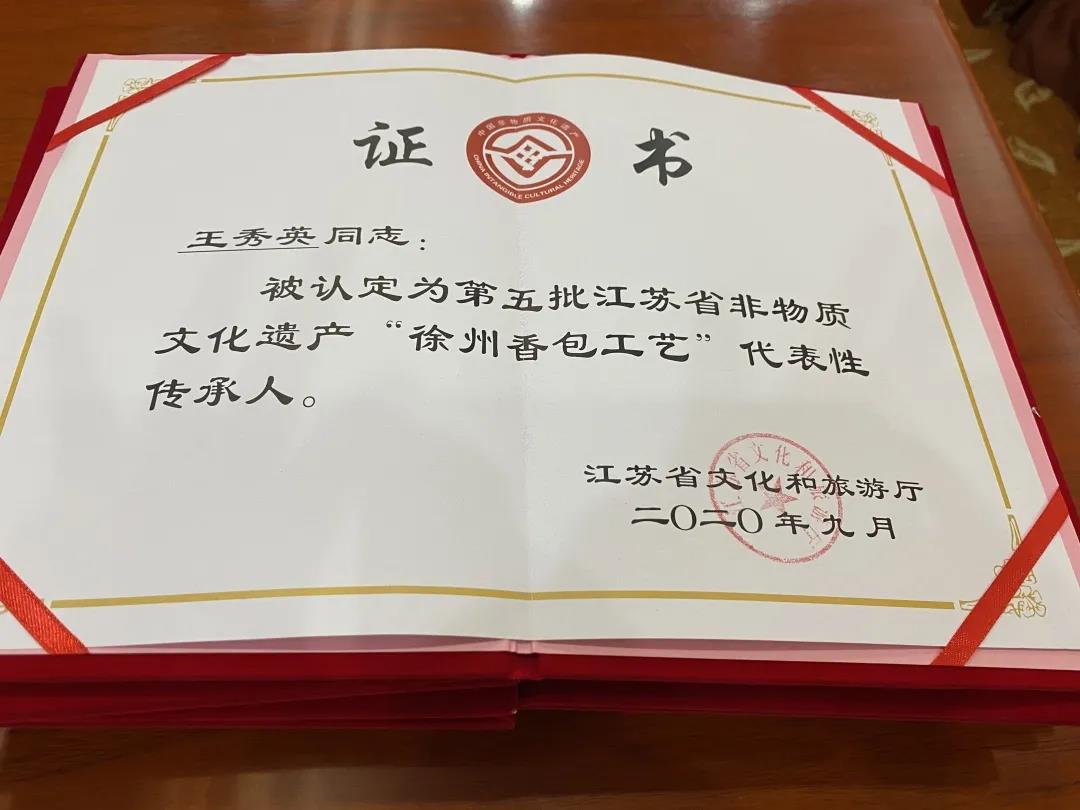 证 书
中国非物质文化遗产
CHINA INTANGIBLE CULTURAL HERITAGE
王秀英同志：
被认定为第五批江苏省非物质
文化遗产“徐州香包工艺”代表性
传承人。
江苏省文化和旅游厅
二〇二〇年九月
江苏省文化和旅游厅